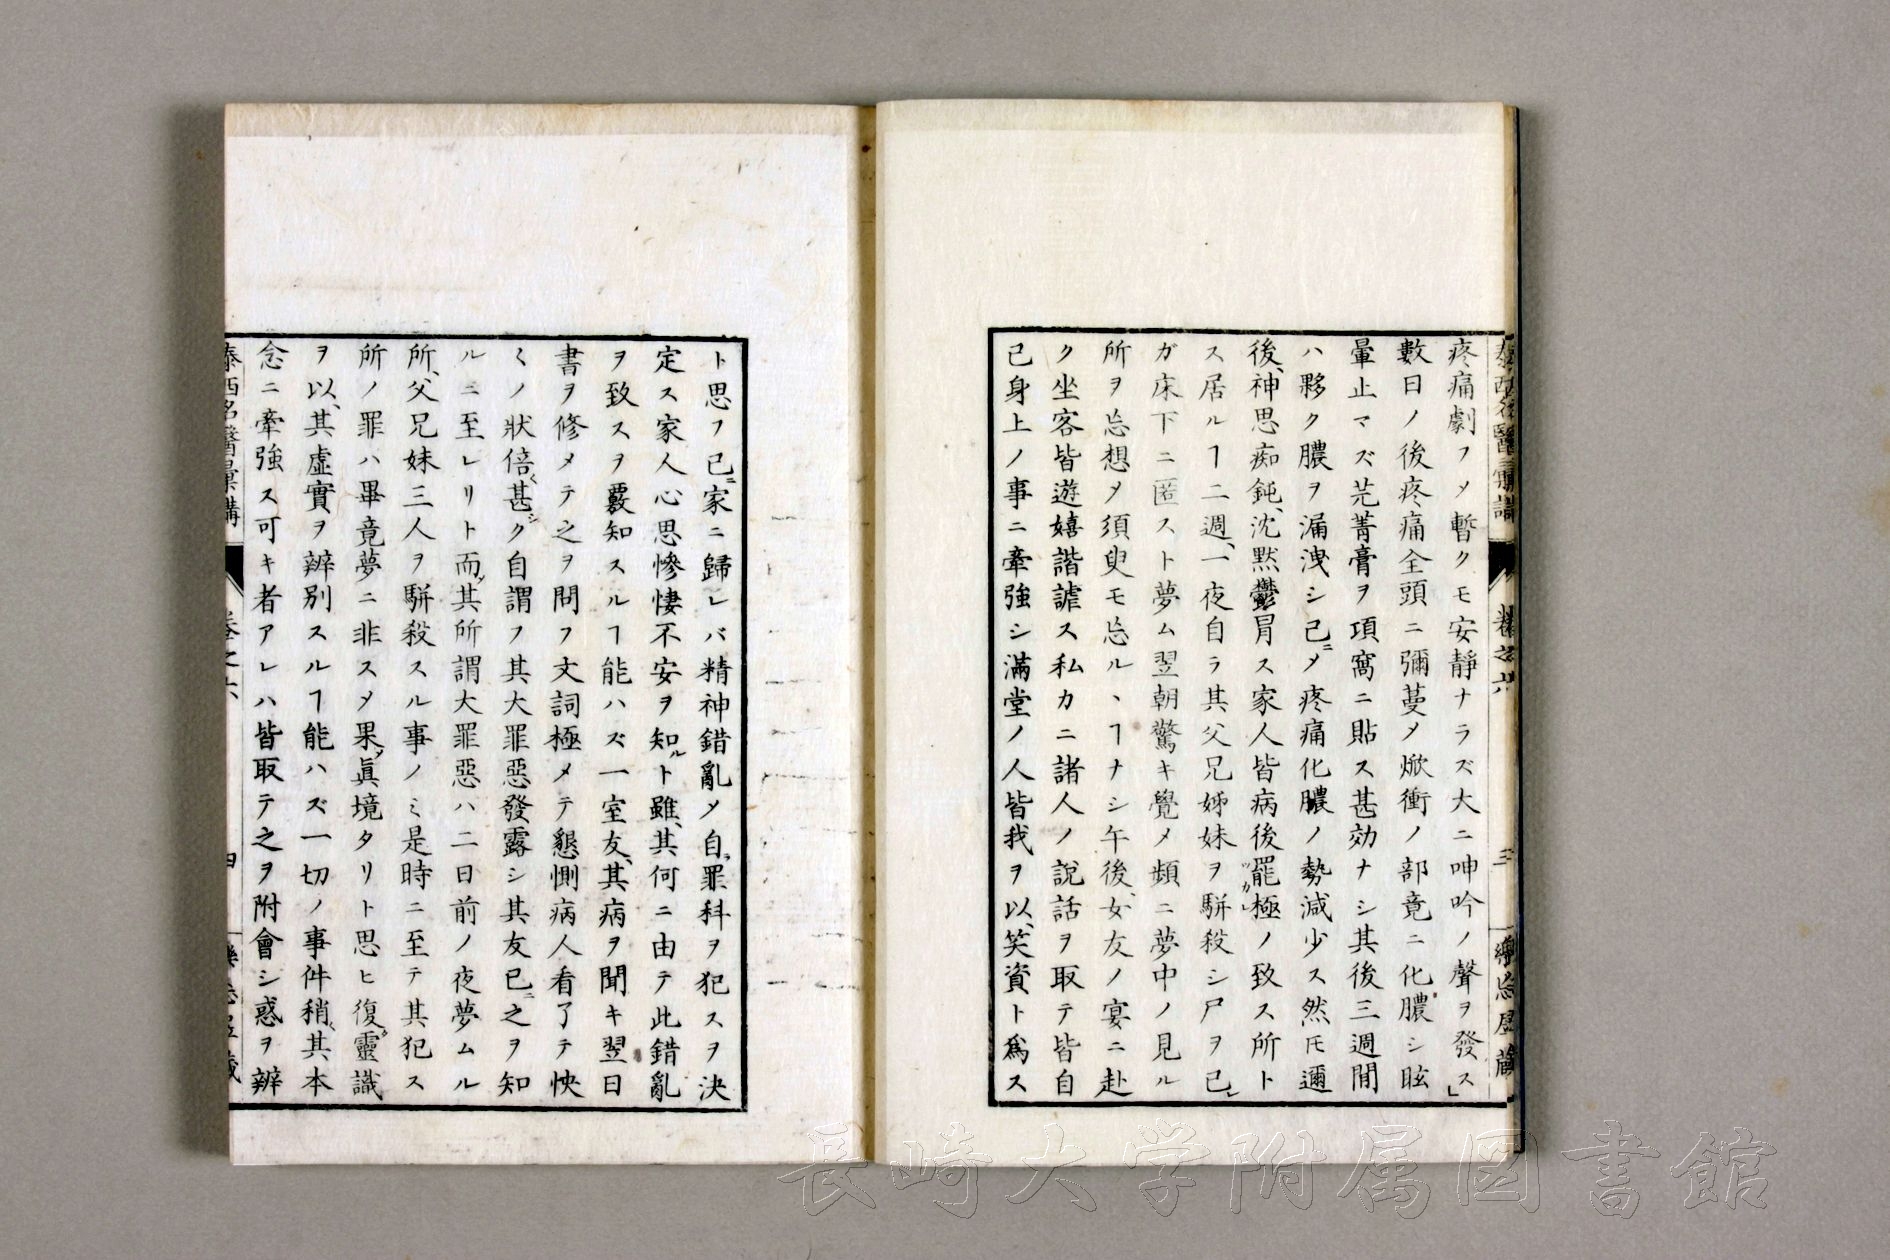 疼痛劇フメ暫クモ安靜ナラズ大ニ呻吟ノ聲ヲ發ス」
數日ノ後疼痛全頭ニ彌蔓メ焮衝ノ部竟ニ化膿シ眩
暈止マズ芫菁膏ヲ項窩ニ貼ス甚効ナシ其後三週間
ハ夥ク膿ヲ漏洩シ已ニメ疼痛化膿ノ勢減少ス然𪜈邇
後、神思痴鈍、沈黙鬱冐ス家人皆病後罷極ノ致ス所ト
ス居ルヿ二週、一夜自ラ其父兄姊妹ヲ駢殺シ尸ヲ已」
ガ床下ニ匿スト夢ム翌朝驚キ覺メ頻ニ夢中ノ見ル
所ヲ忘想メ須臾モ忘ルヽヿナシ午後、女友ノ宴ニ赴
ク坐客皆遊嬉諧謔ス私カニ諸人ノ說話ヲ取テ皆自
己身上ノ事ニ牽強シ滿堂ノ人皆我ヲ以、笑資ト爲ス
ト思フ已ニ家ニ歸レバ精神錯亂メ自ラ罪科ヲ犯スヲ決
定ス家人心思慘悽不安ヲ知ルト雖、其何ニ由テ此錯亂
ヲ致スヲ覈知スルヿ能ハズ一室友、其病ヲ聞キ翌日
書ヲ修メテ之ヲ問フ文詞極メテ懇惻病人看了テ怏
々ノ狀倍甚シク自謂フ其大罪惡發露シ其友已ニ之ヲ知
ルニ至レリト而メ其所謂大罪惡ハ二日前ノ夜夢ムル
所、父兄妹三人ヲ駢殺スル事ノミ是時ニ至テ其犯ス
所ノ罪ハ畢竟夢ニ非スメ果メ眞境タリト思ヒ復靈識
ヲ以、其虛實ヲ辨別スルヿ能ハズ一切ノ事件稍其本
念ニ牽強ス可キ者アレハ皆取テ之ヲ附會シ惑ヲ辨
泰西名醫彙講 卷之六 四
長崎大学附属図書館